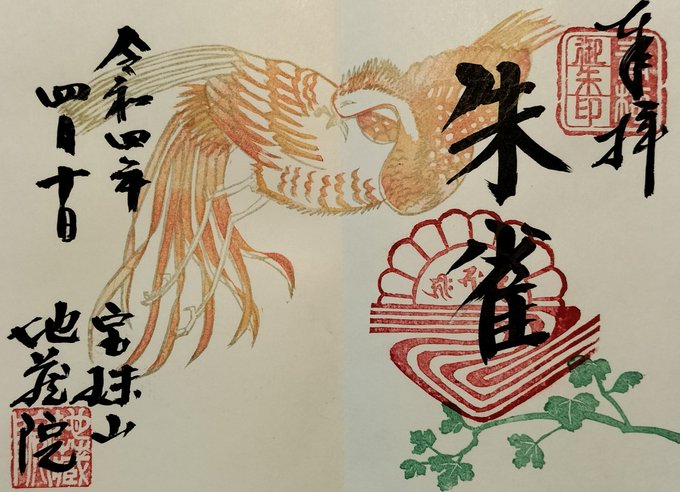 奉拝
御朱印
朱雀
令和四年
四月十日
宝珠山
地蔵院
地蔵院